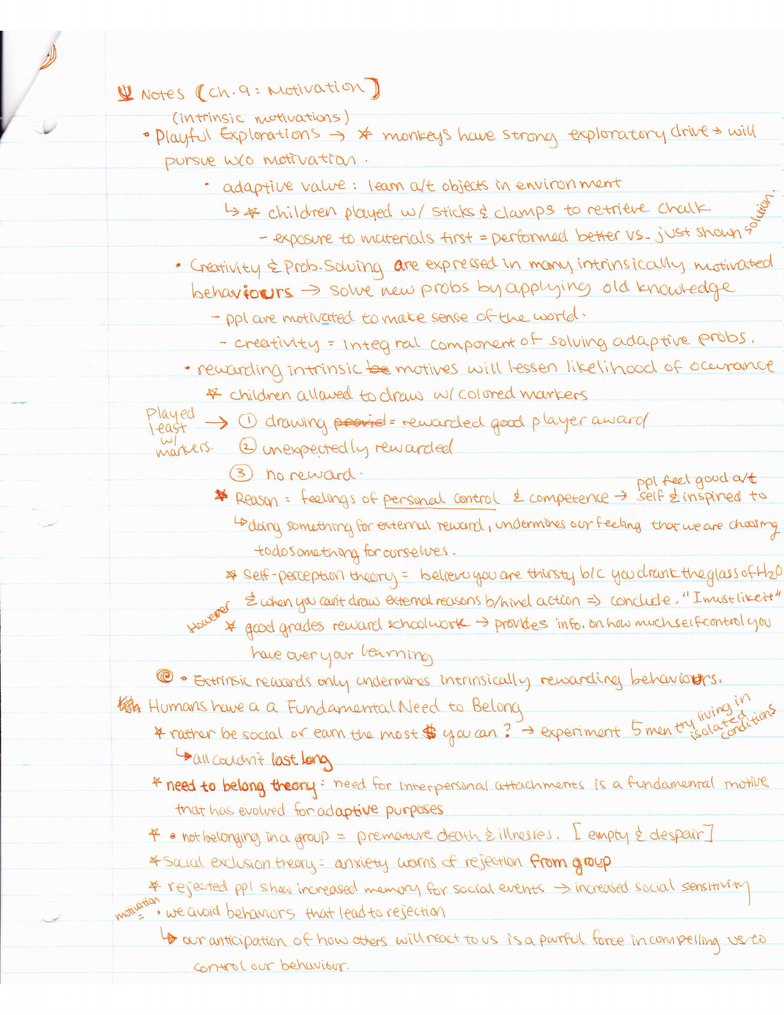 Ψ Notes (Ch. 9: Motivation)
(intrinsic motivations)
• Playful Explorations → * monkeys have strong exploratory drive → will
pursue w/o motivation.
• adaptive value: learn a/t objects in environment
↳ * children played w/ sticks & clamps to retrieve chalk
- exposure to materials first = performed better vs. just shown solution.
• Creativity & Prob. Solving are expressed in many intrinsically motivated
behaviours → solve new probs by applying old knowledge
- ppl are motivated to make sense of the world.
- creativity = integral component of solving adaptive probs.
• rewarding intrinsic be motives will lessen likelihood of ocurance
* children allowed to draw w/ colored markers
Played least w/ markers. → ① drawing = rewarded good player award
② unexpectedly rewarded
③ no reward.
* Reason = feelings of personal control & competence → ppl feel good a/t self & inspired to
↳ doing something for external reward, undermines our feeling that we are choosing
to do something for ourselves.
* Self-perception theory = believe you are thirsty b/c you drank the glass of H2O
& when you can't draw external reasons b/hind action => conclude. "I must like it"
However * good grades reward schoolwork → provides info. on how much self control you
have over your learning
• Extrinsic rewards only undermines intrinsically rewarding behaviours.
Humans have a a Fundamental Need to Belong
* rather be social or earn the most $ you can? → experiment 5 men try living in isolated conditions
↳ all couldn't last long
* need to belong theory: need for interpersonal attachments is a fundamental motive
that has evolved for adaptive purposes
* • not belonging in a group = premature death & illnesses. [empty & despair]
* Social exclusion theory: anxiety warns of rejection from group
* rejected ppl show increased memory for social events → increased social sensitivity
motivation = • we avoid behaviors that lead to rejection
↳ our anticipation of how others will react to us is a pwrful force in compelling us to
control our behaviour.